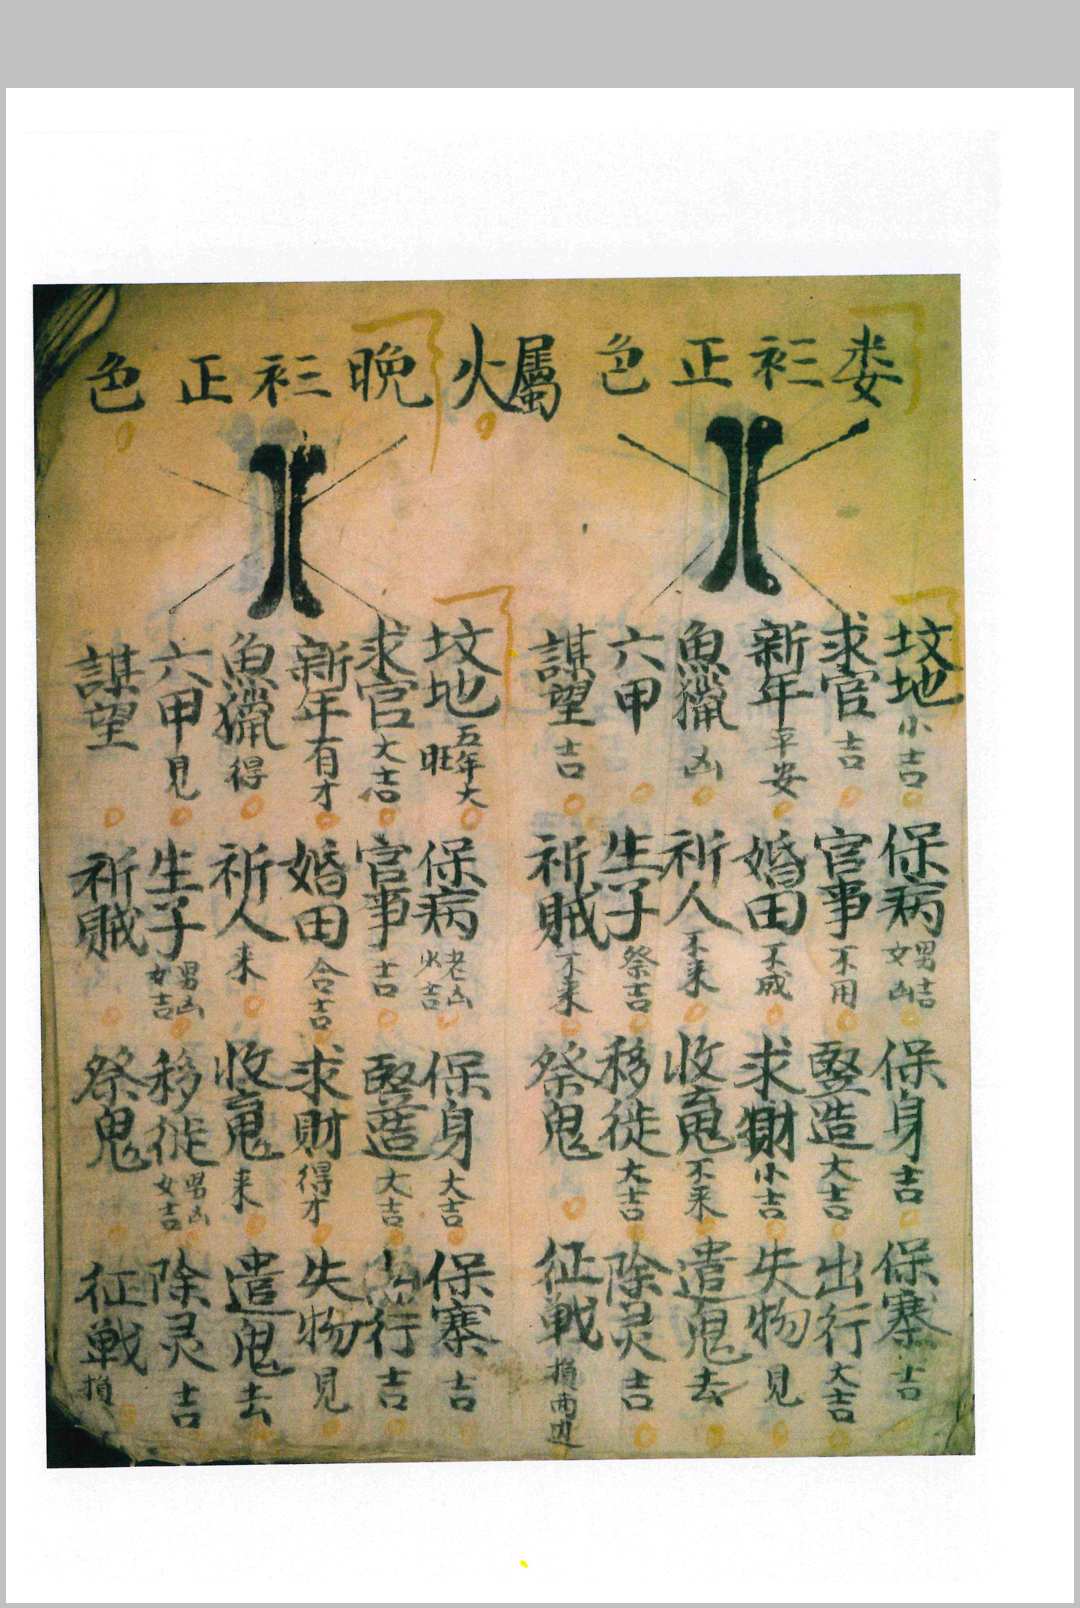 娄衫正色
坟地小吉 保病男吉女凶 保身吉 保寨吉
求官吉 官事不用 竪造大吉 出行大吉
新年平安 婚田不成 求財小吉 失物見
魚獵凶 祈人不来 收魂不来 遣鬼去
六甲 生子祭吉 移徙大吉 除灵吉
謀望吉 祈賊不来 祭鬼 征戦損両边
屬火
晚衫正色
坟地五年大旺 保病老凶少吉 保身大吉 保寨吉
求官大吉 官事吉 竪造大吉 出行吉
新年有才 婚田合吉 求財得才 失物見
魚獵得 祈人来 收魂来 遣鬼去
六甲見 生子男凶女吉 移徙男凶女吉 除灵吉
謀望 祈賊 祭鬼 征戦損